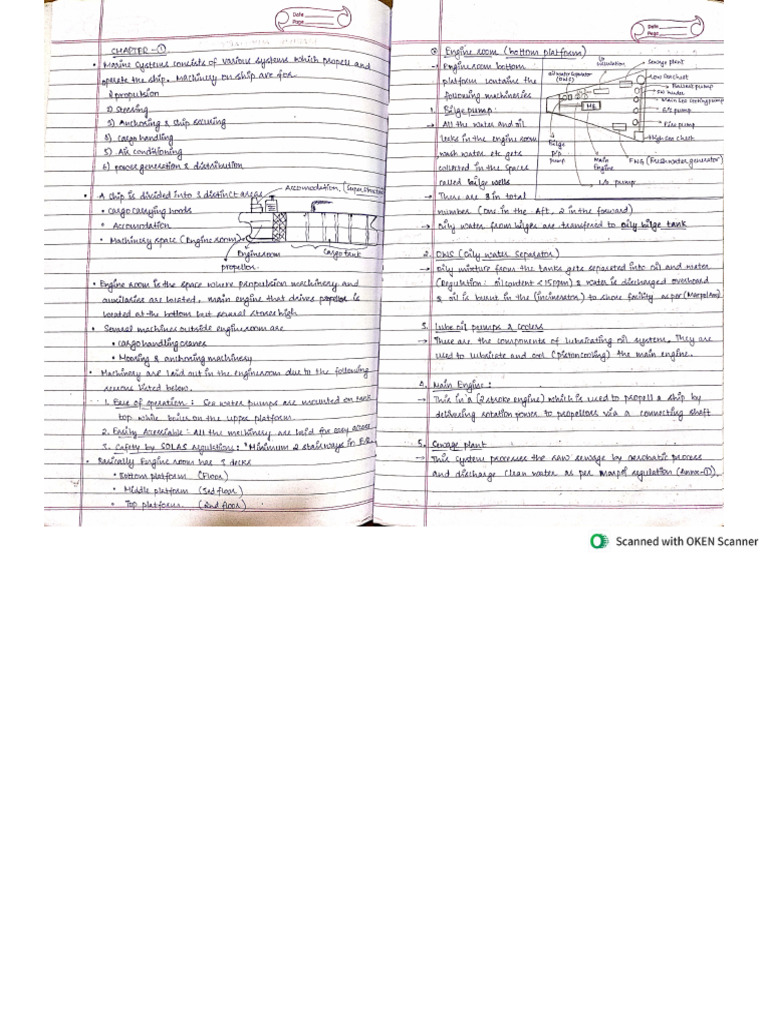 Date
Page
CHAPTER - ①
• Marine Systems consists of various systems which propell and
operate the ship. Machinery on ship are for
1) propulsion
2) Steering
3) Anchoring & ship securing
4) Cargo handling
5) Air conditioning
6) power generation & distribution
• A ship is divided into 3 distinct areas
• Cargo carrying
• Accomodation
• Machinery space (Engine room)
Accomodation
Engineroom
Cargo tank
propellor
• Engine room is the space where propulsion machinery and
auxilaries are located. Main engine that drives propellor is
located at the bottom but several stores high
• Several machines outside engineroom are
• Cargo handling cranes
• Mooring & anchoring machinery
• Machinery are laid out in the engineroom due to the following
reasons listed below.
1. Ease of operation : Sea water pumps are mounted on tank
top while boiler on the upper platform.
2. Easily Accessiable : All the machinery are laid for easy access
3. Safety by SOLAS regulations : "Minimum 2 stairways in E.R
• Basically Engine room has 3 decks
• Bottom platform (Floor)
• Middle platform (3rd floor)
• Top platform. (2nd floor)
Date
Page
Engine room (bottom platform)
→ Engine room bottom
platform contains the
following machineries
1. Bilge pump :
→ All the water and oil
leaks in the engine room
wash water etc gets
collected in the spaces
called bilge wells
→ There are 3 in total
number (One in the Aft, 2 in the forward)
→ Oily water from bilges are transfered to oily bilge tank
oil water seperator
(OWS)
Sewage plant
Low Sea chest
Ballast pump
Main sea cooling pump
G/S pump
Fire pump
High Sea Chest
FWG (Freshwater generator)
ME
Bilge
pump
Main
Engine
L/O pump
2. OWS (Oily water Separator)
→ Oily mixture from the tanks gets separated into oil and water
(Regulation : oil content < 15ppm) & water is discharged overboard
& oil is burnt in the (incinerator) to shore facility as per (Marpol
3. Lube oil pumps & coolers
→ These are the components of lubricating oil system. They are
used to lubricate and cool (piston cooling) the main engine.
4. Main Engine :
→ This is a (2 stroke engine) which is used to propell a ship by
delivering rotation power to propellors via a connecting shaft
5. Sewage plant
→ This system processes the raw sewage by aerobatic process
and discharge clean water as per Marpol regulation
Scanned with OKEN Scanner